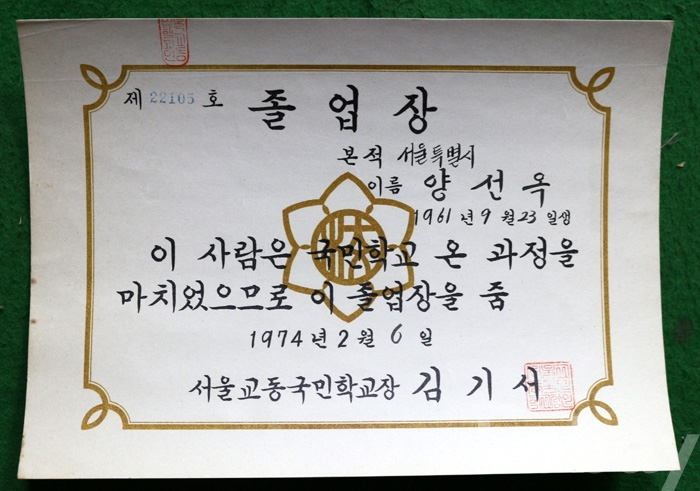 제 22105 호
졸업장
본적 서울특별시
이름 양선옥
1961년 9월 23일생
이 사람은 국민학교 온 과정을
마치었으므로 이 졸업장을 줌
1974년 2월 6일
서울교동국민학교장 김기서